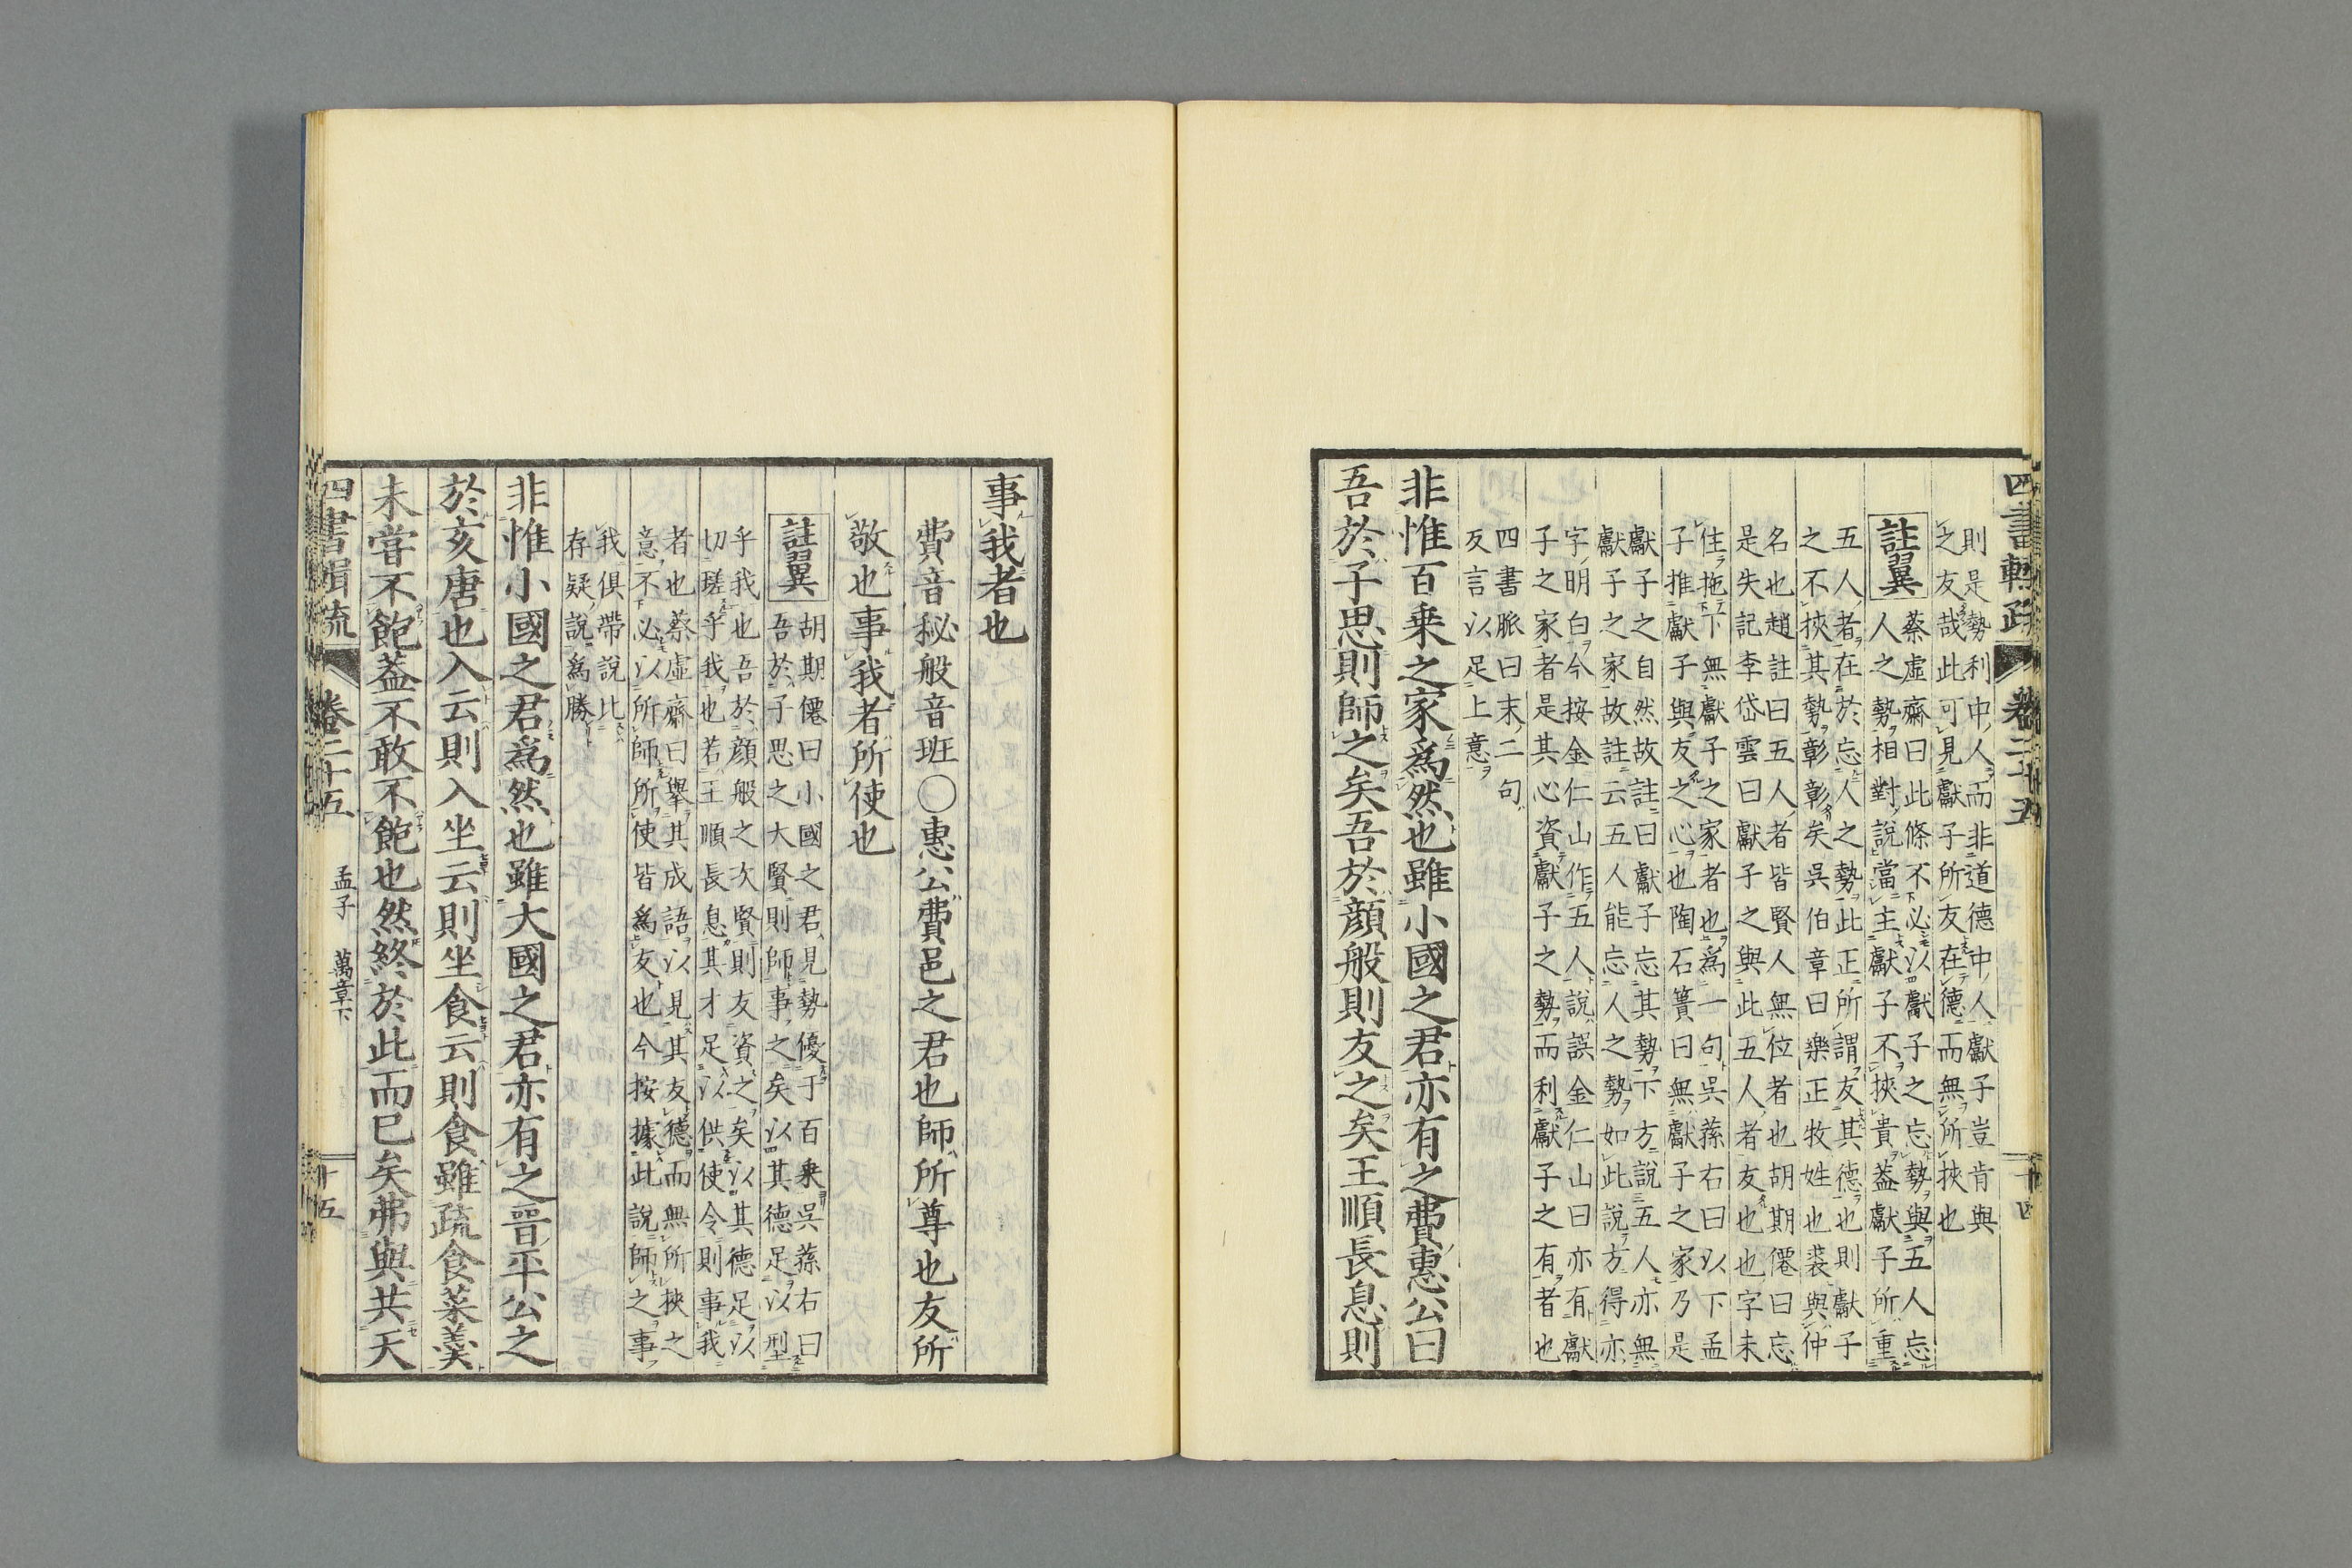 四書輯疏
卷二十五
十四
則是勢利中人而非道德中人獻子豈肯與
之友哉此可見獻子所友在德而無所挾也
註翼
蔡虛齋曰此條不必以獻子之忘勢與五人忘
人之勢相對說當主獻子不挾貴蓋獻子所重
五人者在於忘人之勢此正所謂友其德也則獻子
之不挾其勢彰彰矣吳伯章曰樂正牧姓也裘與仲
名也趙註曰五人者皆賢人無位者也胡期僊曰忘
是失記李岱雲曰獻子之與此五人者友也也字未
住拖下無獻子之家者也爲一句吳蓀右曰以下孟
子推獻子與友之心也陶石簣曰無獻子之家乃是
獻子之自然故註曰獻子忘其勢下方說五人亦無
獻子之家故註云五人能忘人之勢如此說方得亦
字明白今按金仁山作五人說誤金仁山曰亦有獻
子之家者是其心資獻子之勢而利獻子之有者也
四書脈曰末二句
反言以足上意
非惟百乘之家爲然也雖小國之君亦有之費惠公曰
吾於子思則師之矣吾於顏般則友之矣王順長息則
事我者也
費音秘般音班○惠公費邑之君也師所尊也友所
敬也事我者所使也
註翼
胡期僊曰小國之君見勢優于百乘吳蓀右曰
吾於子思之大賢則師事之矣以其德足以型
乎我也吾於顏般之次賢則友資之矣以其德足以
切瑳乎我也若王順長息其才足以供使令則事我
者也蔡虛齋曰舉其成語以見其友德而無所挾之
意不必以所師所使皆爲友也今按據此說師之事
我俱帶說比
存疑說爲勝
非惟小國之君爲然也雖大國之君亦有之晉平公之
於亥唐也入云則入坐云則坐食云則食雖疏食菜羹
未嘗不飽蓋不敢不飽也然終於此而已矣弗與共天
四書輯疏
卷二十五
孟子 萬章下
十五